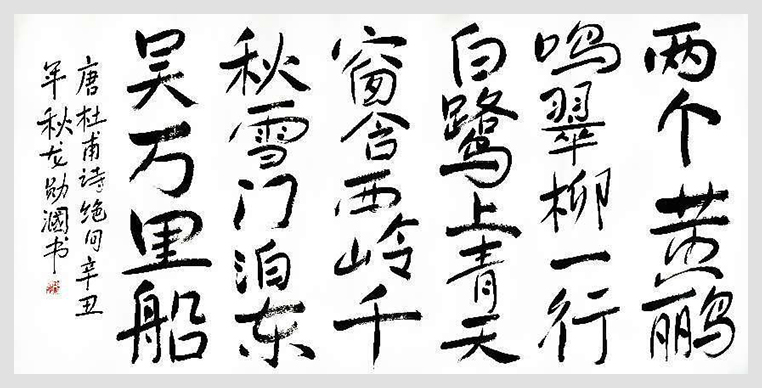 两个黄鹂
鸣翠柳一行
白鹭上青天
窗含西岭千
秋雪门泊东
吴万里船
唐杜甫诗绝句辛丑
年秋龙勋书